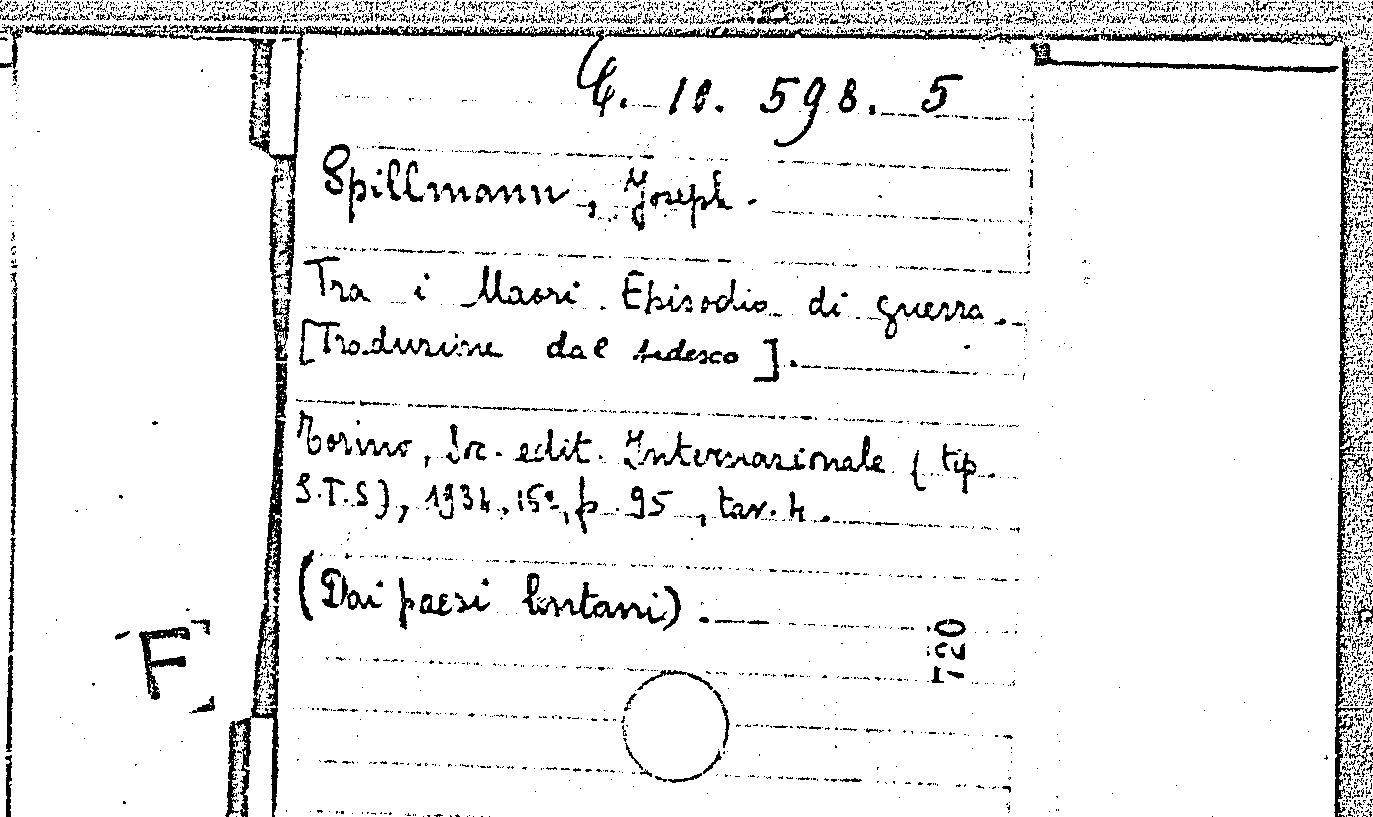 C. 10. 598. 5
Spillmann, Joseph.
Tra i Maori. Episodio di guerra.
[Traduzione dal tedesco].
Torino, Soc. edit. Internazionale (tip.
S.T.S), 1934, 15º, p. 95, tav. 4.
(Dai paesi lontani).
720
F